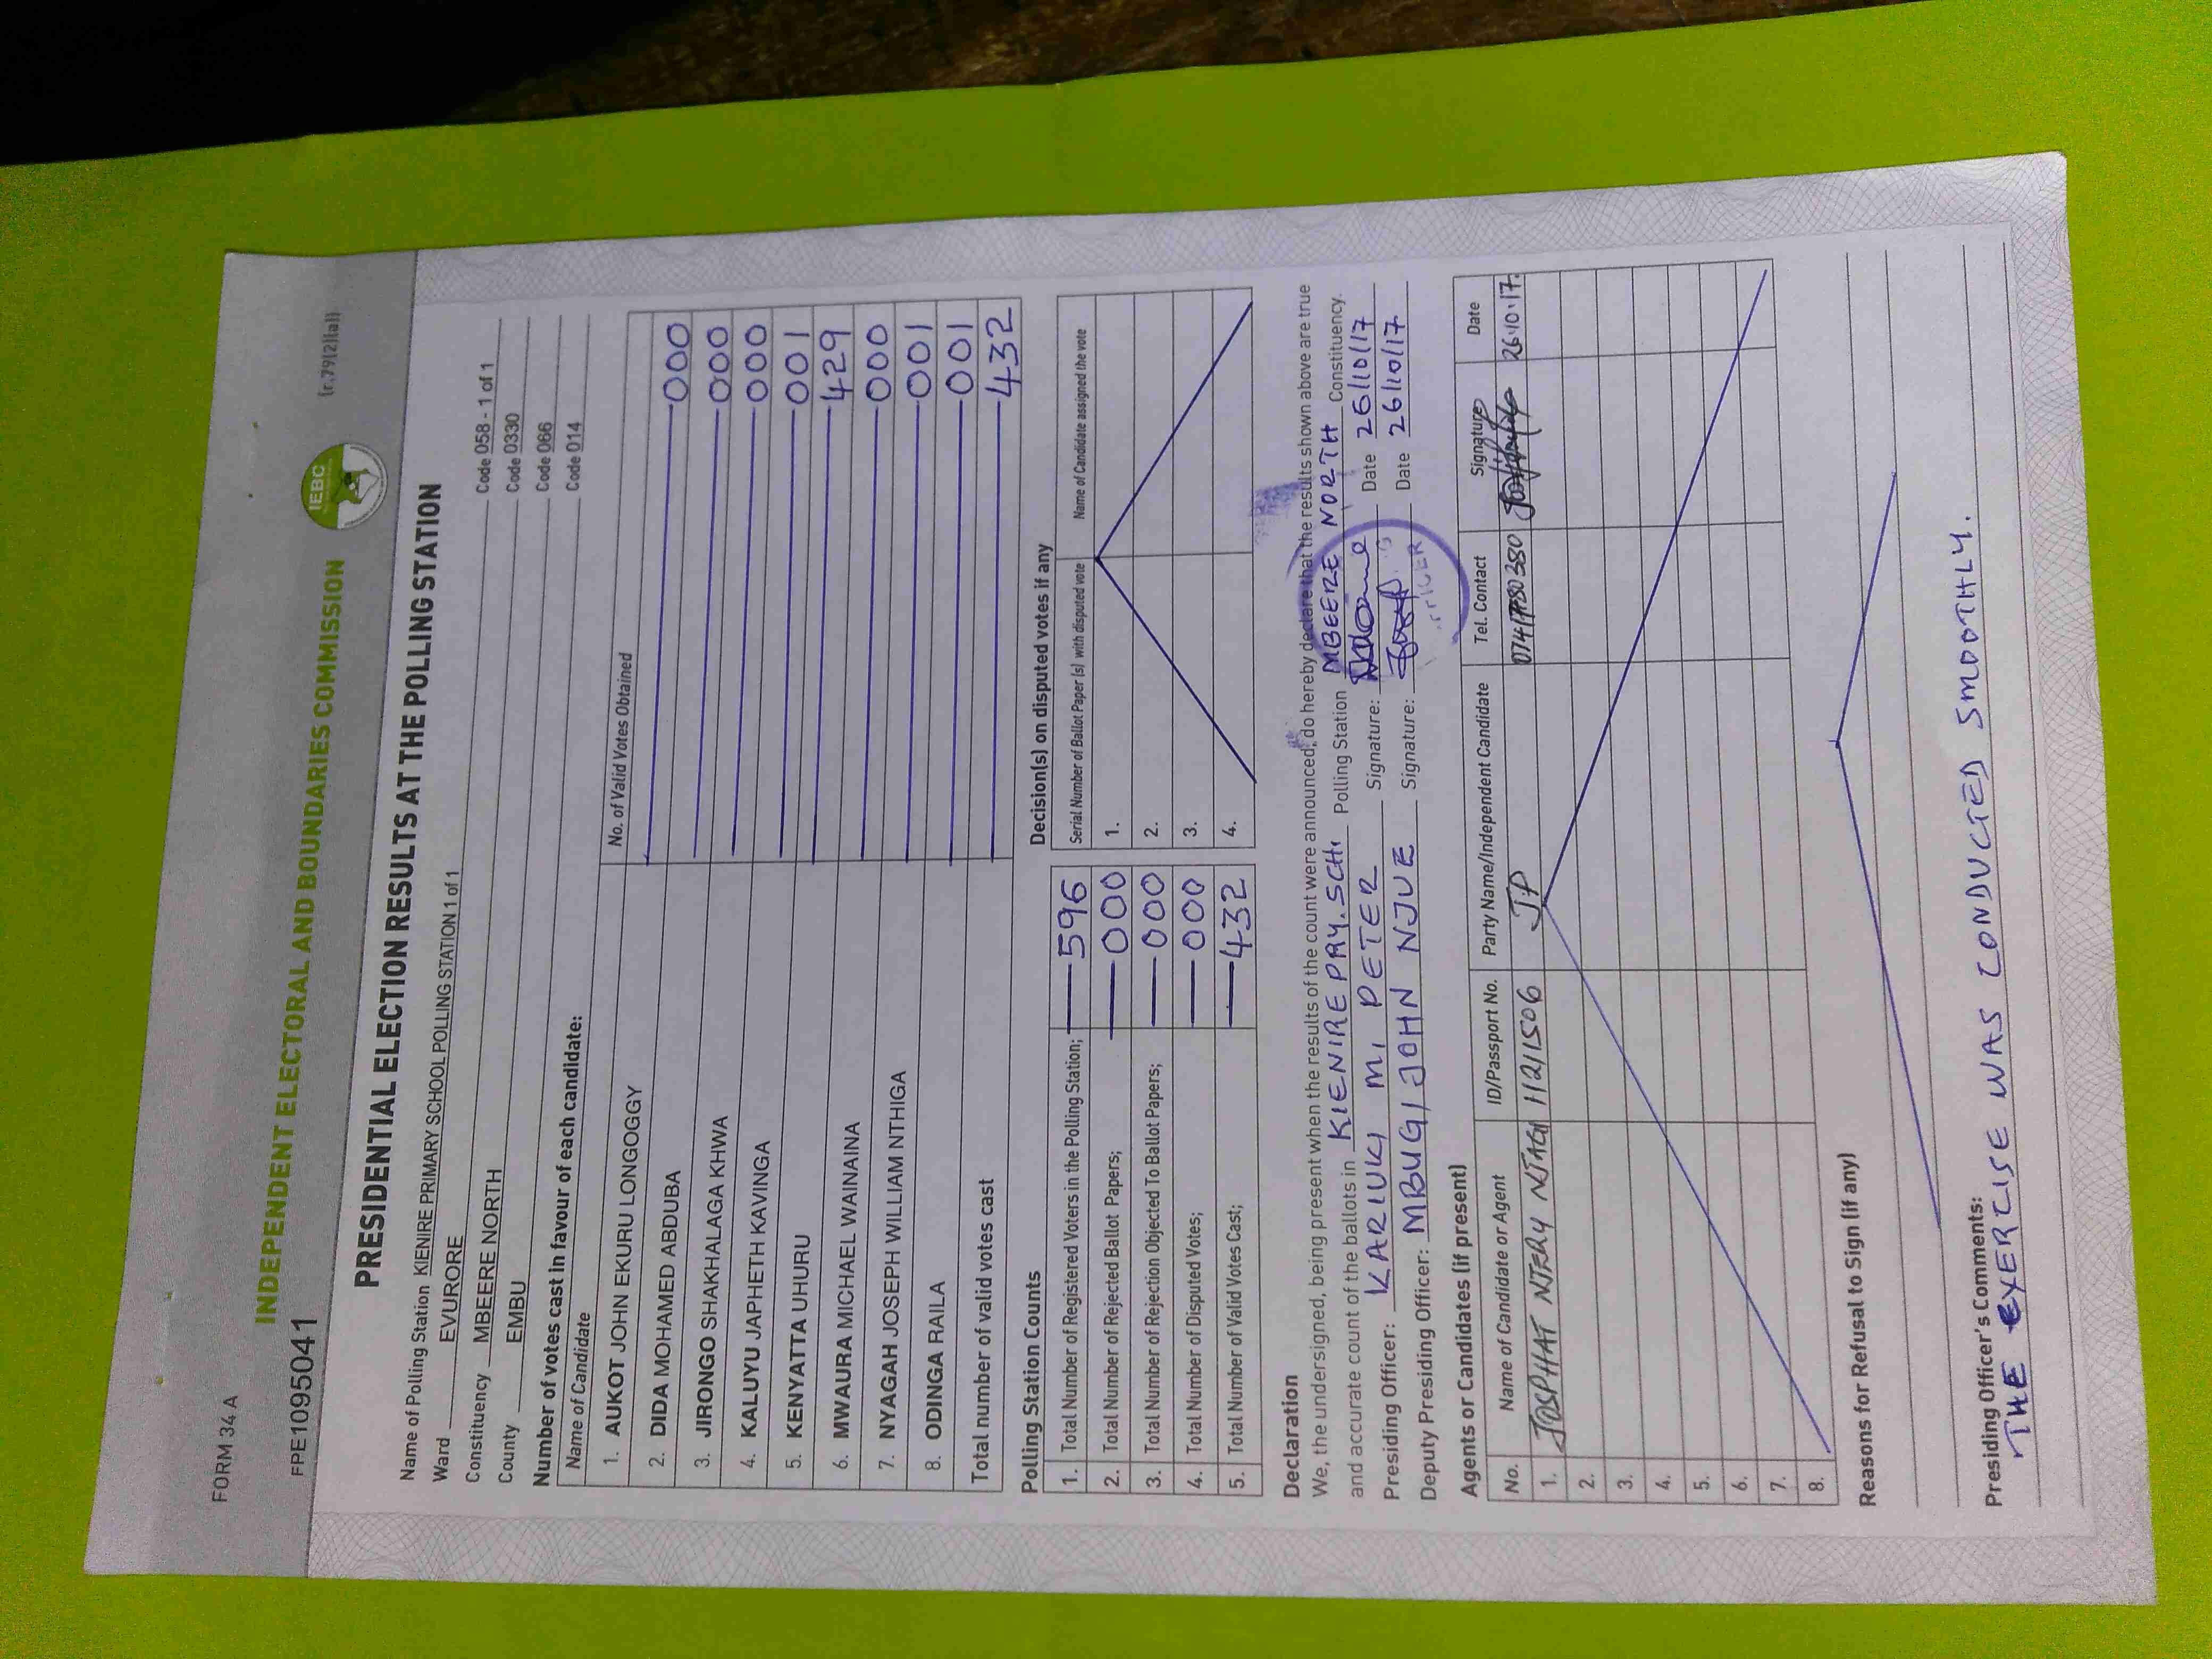 FORM 34 A
(r.79(2)(a))
INDEPENDENT ELECTORAL AND BOUNDARIES COMMISSION
IEBC
FPE1095041
PRESIDENTIAL ELECTION RESULTS AT THE POLLING STATION
Name of Polling Station KIENIRE PRIMARY SCHOOL POLLING STATION 1 of 1 Code 058 - 1 of 1
Ward EVURORE Code 0330
Constituency MBEERE NORTH Code 066
County EMBU Code 014
Number of votes cast in favour of each candidate:
Name of Candidate No. of Valid Votes Obtained
1. AUKOT JOHN EKURU LONGOGGY 000
2. DIDA MOHAMED ABDUBA 000
3. JIRONGO SHAKHALAGA KHWA 000
4. KALUYU JAPHETH KAVINGA 001
5. KENYATTA UHURU 429
6. MWAURA MICHAEL WAINAINA 000
7. NYAGAH JOSEPH WILLIAM NTHIGA 001
8. ODINGA RAILA 001
Total number of valid votes cast 432
Polling Station Counts
1. Total Number of Registered Voters in the Polling Station; 596
2. Total Number of Rejected Ballot Papers; 000
3. Total Number of Rejection Objected To Ballot Papers; 000
4. Total Number of Disputed Votes; 000
5. Total Number of Valid Votes Cast; 432
Decision(s) on disputed votes if any
Serial Number of Ballot Paper (s) with disputed vote Name of Candidate assigned the vote
1.
2.
3.
4.
Declaration
We, the undersigned, being present when the results of the count were announced, do hereby declare that the results shown above are true
and accurate count of the ballots in KIENIRE PRY. SCH. Polling Station MBEERE NORTH Constituency.
Presiding Officer: KARIUKI M. PETER Signature: Date 26/10/17
Deputy Presiding Officer: MBUGI JOHN NJUE Signature: Date 26/10/17
Agents or Candidates (if present)
No. Name of Candidate or Agent ID/Passport No. Party Name/Independent Candidate Tel. Contact Signature Date
1. JOSPHAT NJERY NJAGI 11211506 JP 26.10.17
2.
3.
4.
5.
6.
7.
8.
Reasons for Refusal to Sign (if any)
Presiding Officer's Comments:
THE EXERCISE WAS CONDUCTED SMOOTHLY.